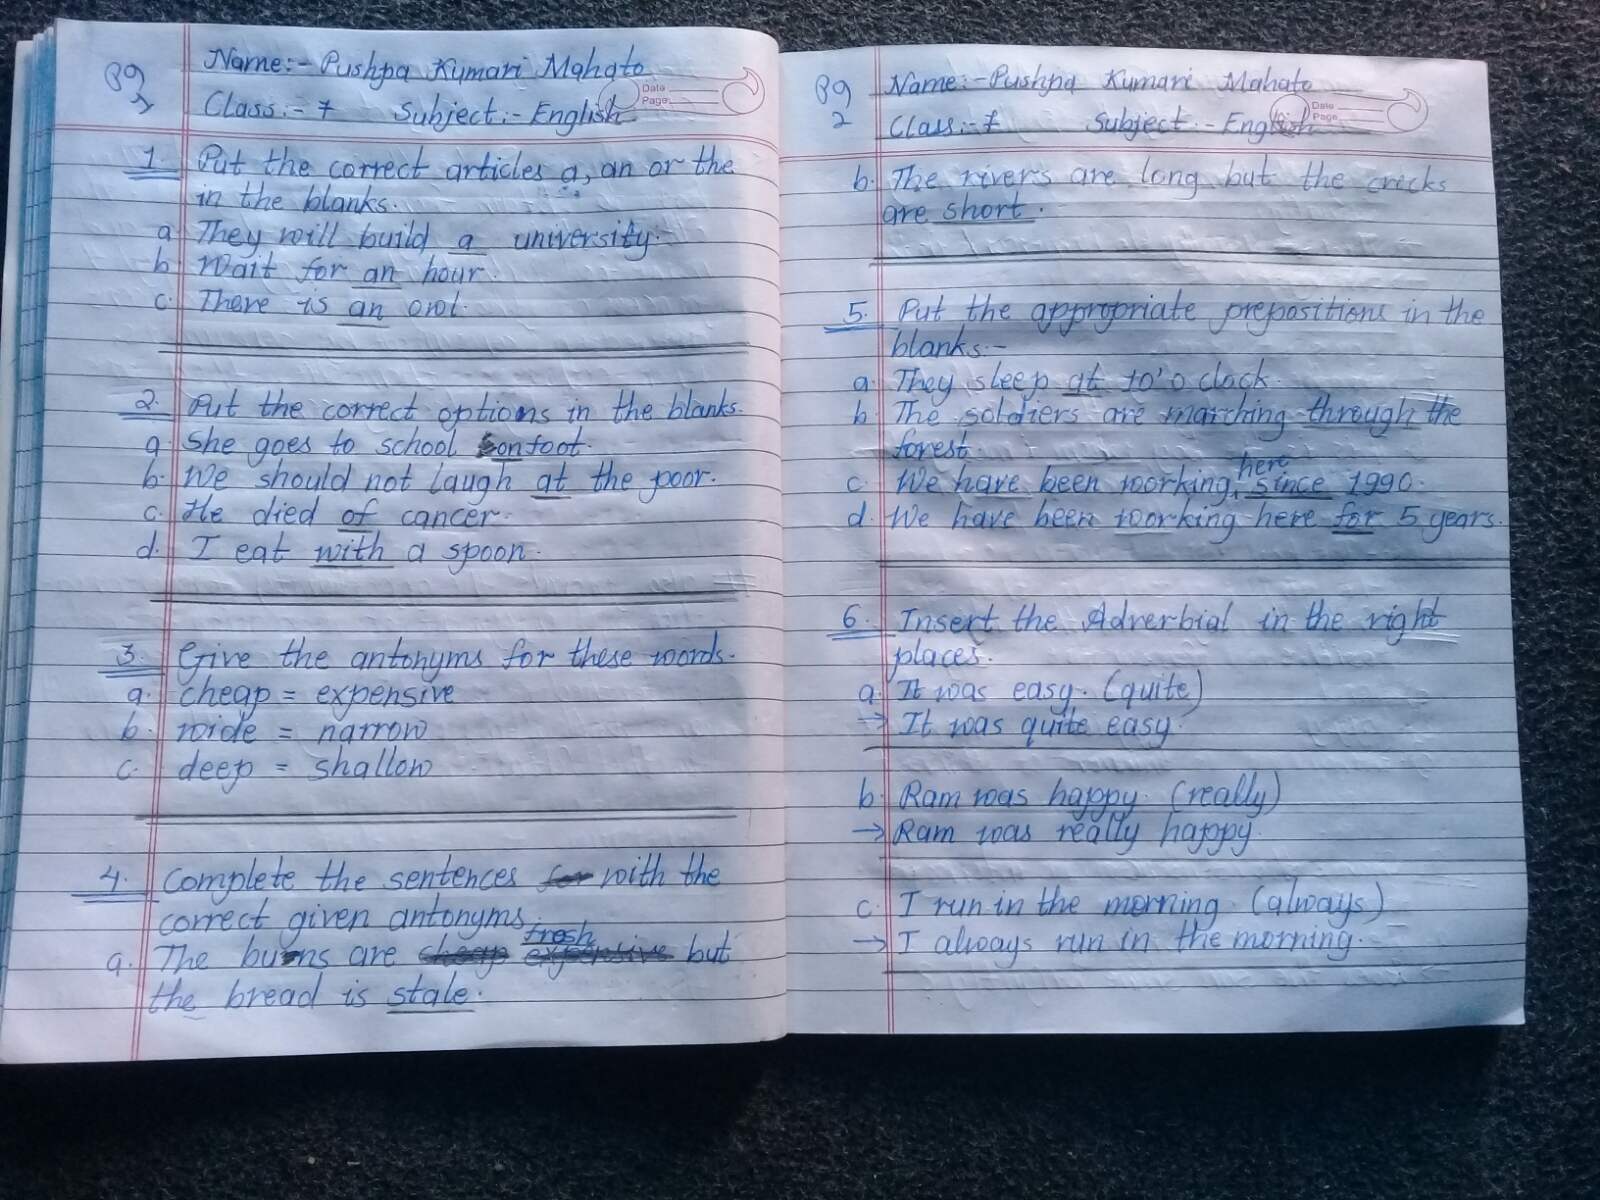 Pg 1
Name:- Pushpa Kumari Mahato
Class:- 7 Subject:- English
Date
Page
1. Put the correct articles a, an or the
in the blanks.
a. They will build a university.
b. Wait for an hour.
c. There is an owl.
2. Put the correct options in the blanks.
a. She goes to school on foot.
b. We should not laugh at the poor.
c. He died of cancer.
d. I eat with a spoon.
3. Give the antonyms for these words.
a. cheap = expensive
b. wide = narrow
c. deep = shallow
4. Complete the sentences for with the
correct given antonyms.
fresh
a. The buns are cheap expensive but
the bread is stale.
Pg 2
Name:- Pushpa Kumari Mahato
Class:- 7 Subject:- English
Date
Page
b. The rivers are long but the cricks
are short.
5. Put the appropriate prepositions in the
blanks:-
a. They sleep at 10'o clock.
b. The soldiers are marching through the
forest.
here
c. We have been working, since 1990.
d. We have been working here for 5 years.
6. Insert the Adverbial in the right
places.
a. It was easy. (quite)
→ It was quite easy.
b. Ram was happy. (really)
→ Ram was really happy.
c. I run in the morning. (always)
→ I always run in the morning.